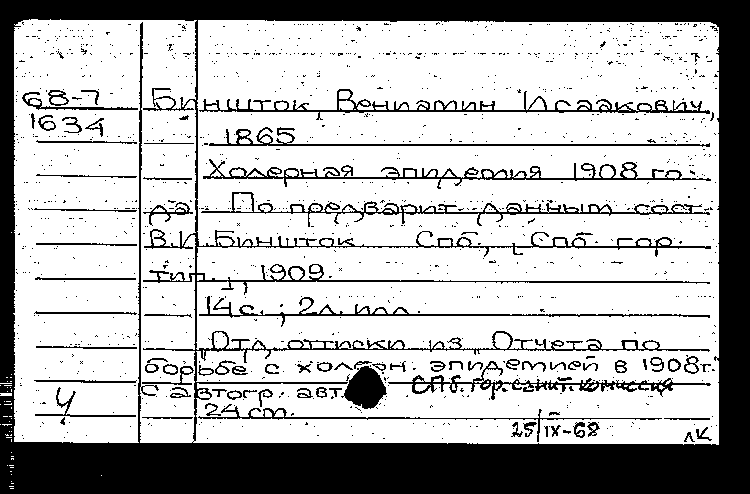 68-7
1634
Биншток, Вениамин Исаакович,
1865
Холерная эпидемия 1908 го-
да. По предварит. данным сост.
В.И. Биншток Спб., Спб. гор.
тип., 1909.
14 с.; 2 л. илл.
Отд. оттиски из "Отчета по
борьбе с холерн. эпидемией в 1908г."
С автогр. авт. СПб. гор. санит. комиссия
24 см.
Ч
25/IX-68
ЛК